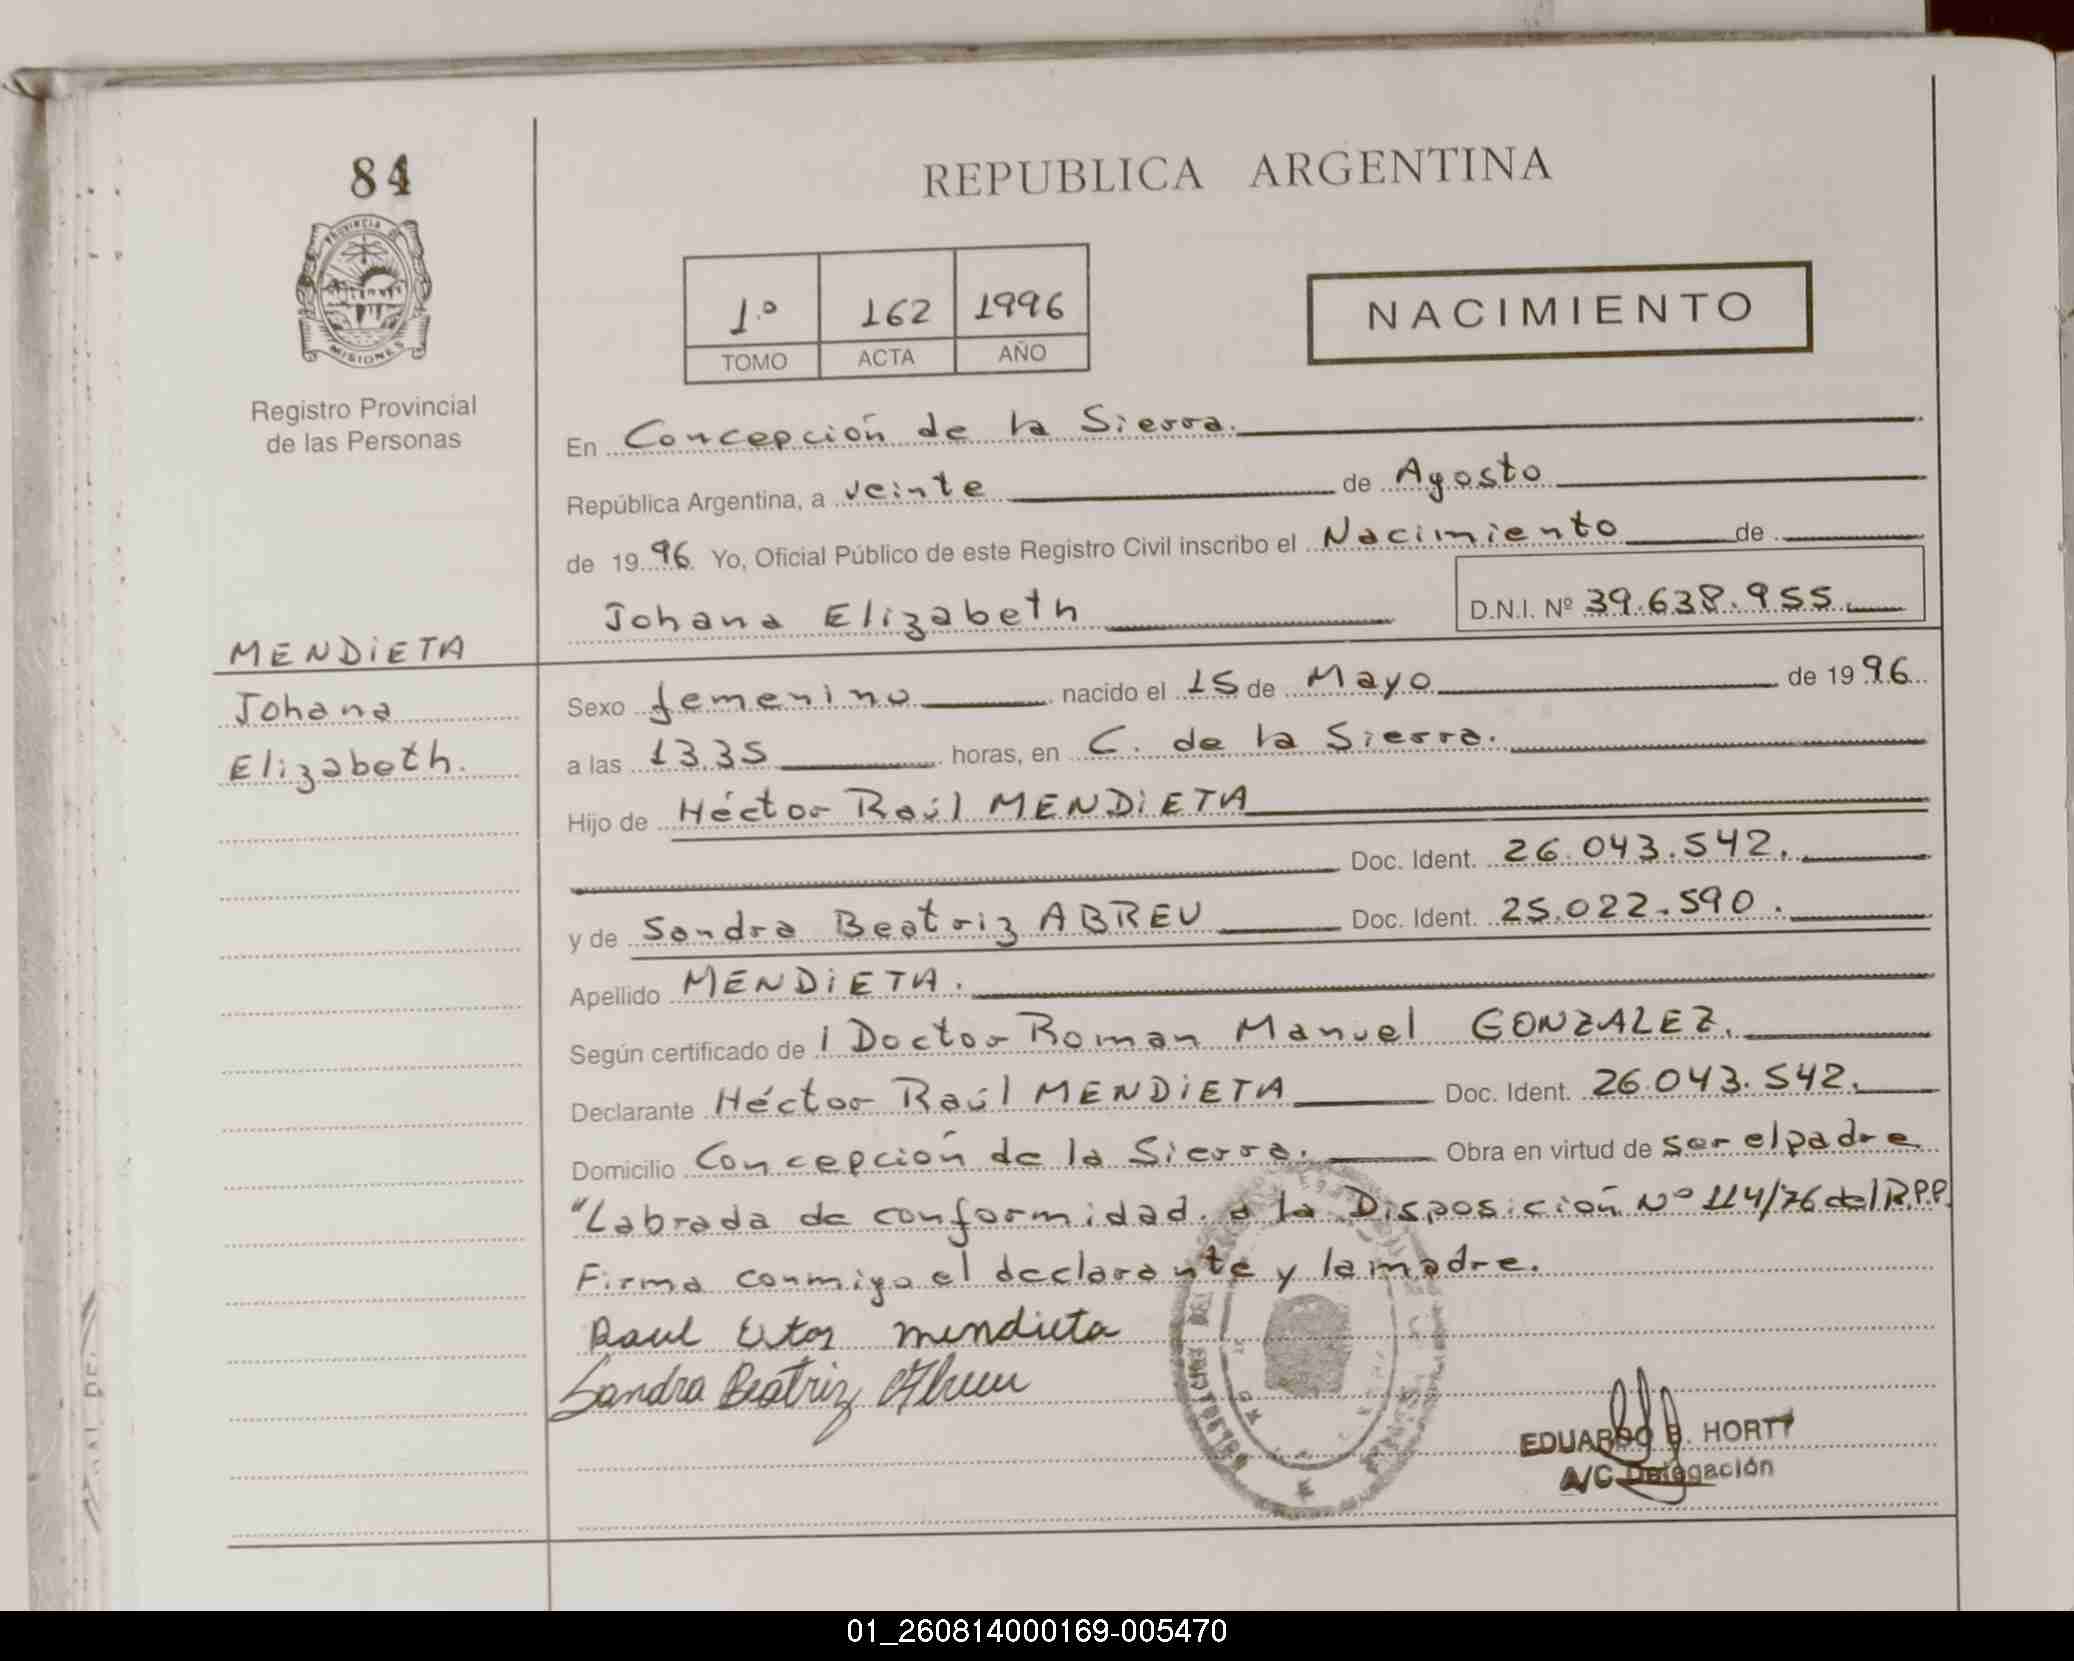 84
REPUBLICA ARGENTINA
PROVINCIA DE
MISIONES
Registro Provincial
de las Personas
1.º 162 1996
TOMO ACTA AÑO
NACIMIENTO
En Concepción de la Sierra.
República Argentina, a veinte de Agosto
de 1996 Yo, Oficial Público de este Registro Civil inscribo el Nacimiento de
Johana Elizabeth D.N.I. Nº 39.638.955.
MENDiETA
Johana
Elizabeth.
Sexo femenino nacido el 15 de Mayo de 1996
a las 13.35 horas, en C. de la Sierra.
Hijo de Héctor Raúl MENDiETA
Doc. Ident. 26.043.542.
y de Sandra Beatriz ABREU Doc. Ident. 25.022.590.
Apellido MENDiETA.
Según certificado de l Doctor Roman Manuel GONZALEZ.
Declarante Héctor Raúl MENDiETA Doc. Ident. 26.043.542.
Domicilio Concepción de la Sierra. Obra en virtud de ser el padre
"Labrada de conformidad a la Disposición Nº 114/76 del R.P.P.
Firma conmigo el declarante y la madre.
Raul mendieta
Sandra Beatriz Abreu
EDUARDO B. HORTT
A/C Delegación
01_260814000169-005470